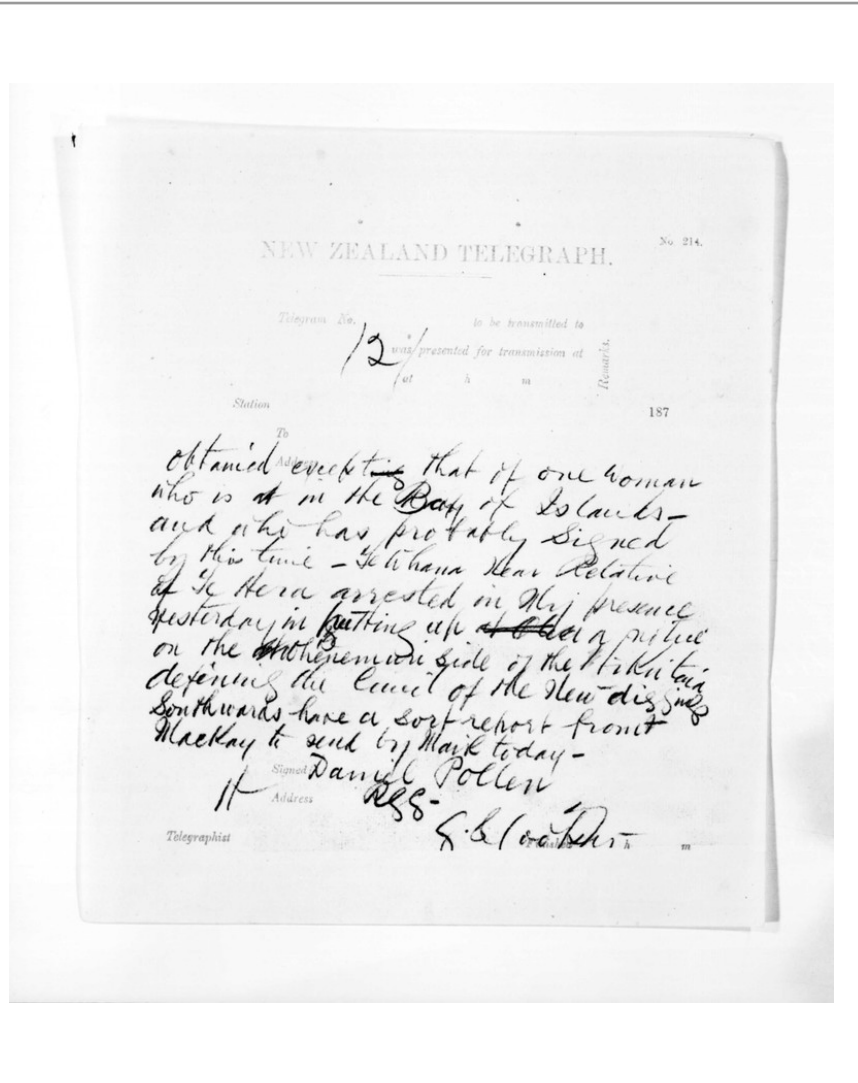 NEW ZEALAND TELEGRAPH.
No. 214.
Telegram No. to be transmitted to
12/ was presented for transmission at
at h m
Remarks.
Station
187
To
Address
obtained excepting that of one woman
who is at in the Bay of Islands -
and who has probably Signed
by this time - near Relative
of Te Hera arrested in My presence
yesterday in putting up a
on the Ohinemuri side of the Hikutaia
defining the limit of the New diggings
Southwards have a report from
MacKay to send by Mail today -
Signed Daniel Pollen
Address
Telegraphist h m